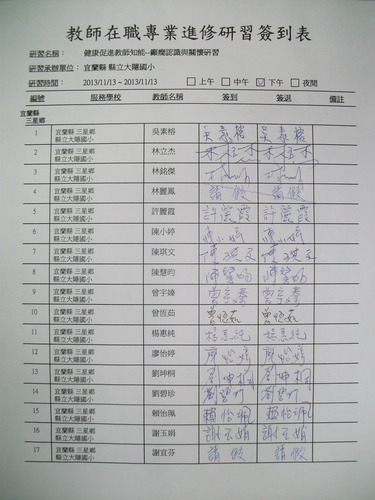 教師在職專業進修研習簽到表
研習名稱： 健康促進教師知能--癲癇認識與關懷研習
研習承辦單位： 宜蘭縣 縣立大隱國小
研習時間： 2013/11/13 ~ 2013/11/13 □上午 □中午 ☑下午 □夜間
編號 服務學校 教師名稱 簽到 簽退 備註
宜蘭縣
三星鄉
1 宜蘭縣 三星鄉 吳素榕 吳素榕 吳素榕
縣立大隱國小
2 宜蘭縣 三星鄉 林立杰
縣立大隱國小
3 宜蘭縣 三星鄉 林銘傑
縣立大隱國小
4 宜蘭縣 三星鄉 林麗鳳 請假 請假
縣立大隱國小
5 宜蘭縣 三星鄉 許麗霞 許麗霞 許麗霞
縣立大隱國小
6 宜蘭縣 三星鄉 陳小婷 陳小婷 陳小婷
縣立大隱國小
7 宜蘭縣 三星鄉 陳琪文 陳琪文 陳琪文
縣立大隱國小
8 宜蘭縣 三星鄉 陳慧昀 陳慧昀 陳慧昀
縣立大隱國小
9 宜蘭縣 三星鄉 曾宇臻
縣立大隱國小
10 宜蘭縣 三星鄉 曾恆茹 曾恆茹 曾恆茹
縣立大隱國小
11 宜蘭縣 三星鄉 楊惠純
縣立大隱國小
12 宜蘭縣 三星鄉 廖怡婷 廖怡婷 廖怡婷
縣立大隱國小
13 宜蘭縣 三星鄉 劉坤桐 劉坤桐 劉坤桐
縣立大隱國小
14 宜蘭縣 三星鄉 劉碧珍
縣立大隱國小
15 宜蘭縣 三星鄉 賴怡珮 賴怡珮 賴怡珮
縣立大隱國小
16 宜蘭縣 三星鄉 謝玉娟 謝玉娟 謝玉娟
縣立大隱國小
17 宜蘭縣 三星鄉 謝宜芬 請假 請假
縣立大隱國小